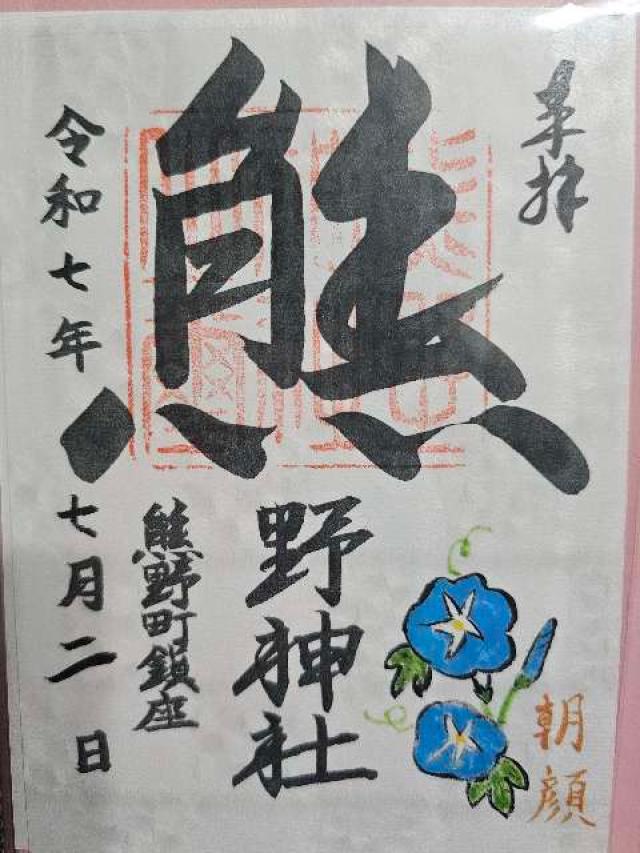 奉拝
熊野神社
熊野町鎮座
令和七年七月二日
朝顔